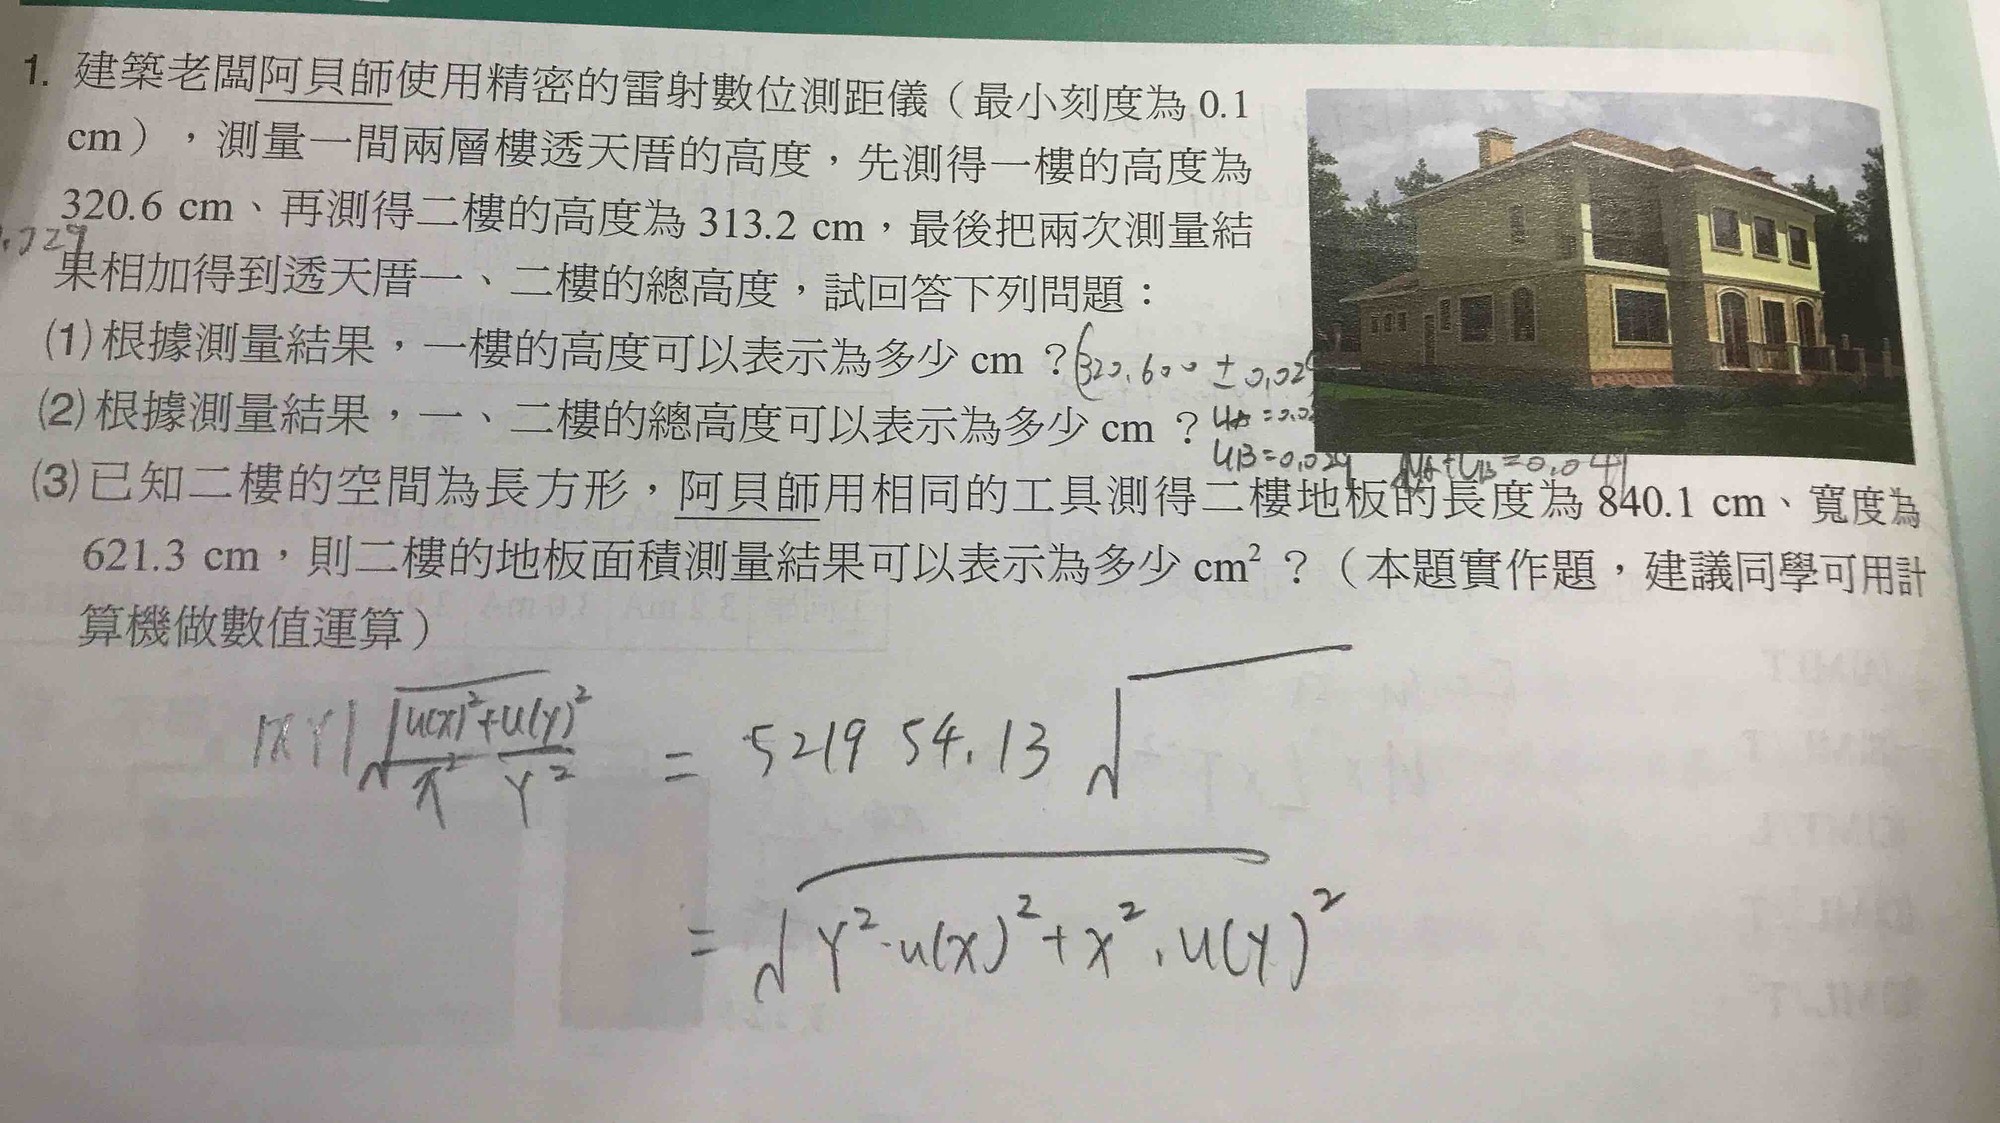 1. 建築老闆阿貝師使用精密的雷射數位測距儀（最小刻度為 0.1
cm），測量一間兩層樓透天厝的高度，先測得一樓的高度為
320.6 cm、再測得二樓的高度為 313.2 cm，最後把兩次測量結
果相加得到透天厝一、二樓的總高度，試回答下列問題：
(1)根據測量結果，一樓的高度可以表示為多少 cm？(320.600 ± 0.029
(2)根據測量結果，一、二樓的總高度可以表示為多少 cm？
uB=0.029
(3)已知二樓的空間為長方形，阿貝師用相同的工具測得二樓地板的長度為 840.1 cm、寬度為
621.3 cm，則二樓的地板面積測量結果可以表示為多少 cm²？（本題實作題，建議同學可用計
算機做數值運算）
|XY|√u(x)²/x²+u(y)²/Y² = 521954.13 √
= √Y²·u(x)²+x²·u(y)²